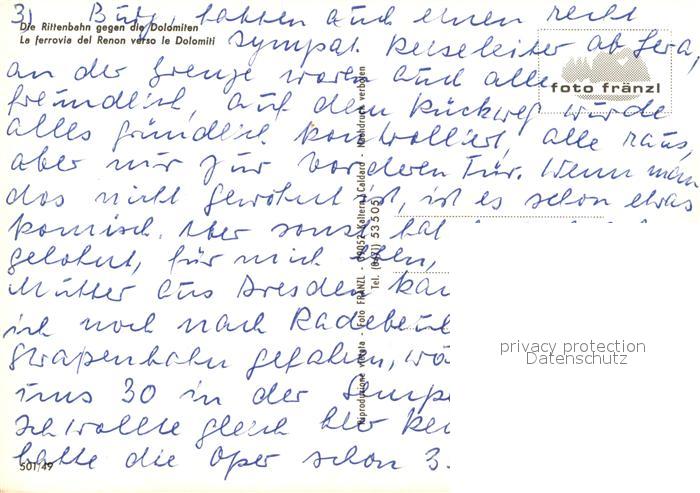 3) Burg, hatten auch einen recht
Die Rittenbahn gegen die Dolomiten
La ferrovia del Renon verso le Dolomiti
sympat. Reiseleiter ab Gera,
an der Grenze waren auch alle
foto fränzl
freundlich, auf dem Rückweg wurde
alles gründlich kontrolliert, alle raus,
aber nur zur vorderen Tür. Wenn man
das nicht gewöhnt ist, ist es schon etwas
komisch. Aber sonst hat
gelohnt, für mich eben,
Mutter aus Dresden
ich noch nach Radebeul
Strassenbahn gefahren,
uns 30 in der
Ich wollte gleich
hatte die Oper schon 3.
501/49
Riproduzione vietata - Foto FRÄNZL - 39052 Kaltern / Caldaro - Nachdruck verboten
Tel. (0471) 53505
privacy protection
Datenschutz